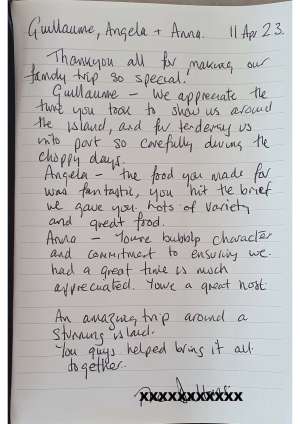 Guillaume, Angela + Anna. 11 Apr 23.
Thankyou all for making our
family trip so special!
Guillaume - We appreciate the
time you took to show us around
the island, and for tendering us
into port so carefully during the
choppy days.
Angela - the food you made for
was fantastic, you hit the brief
we gave you. Lots of variety
and great food.
Anna - Youre bubbly character
and commitment to ensuring we
had a great time is much
appreciated. You're a great host.
An amazing trip around a
stunning island.
You guys helped bring it all
together.
xxxxxxxxxxx